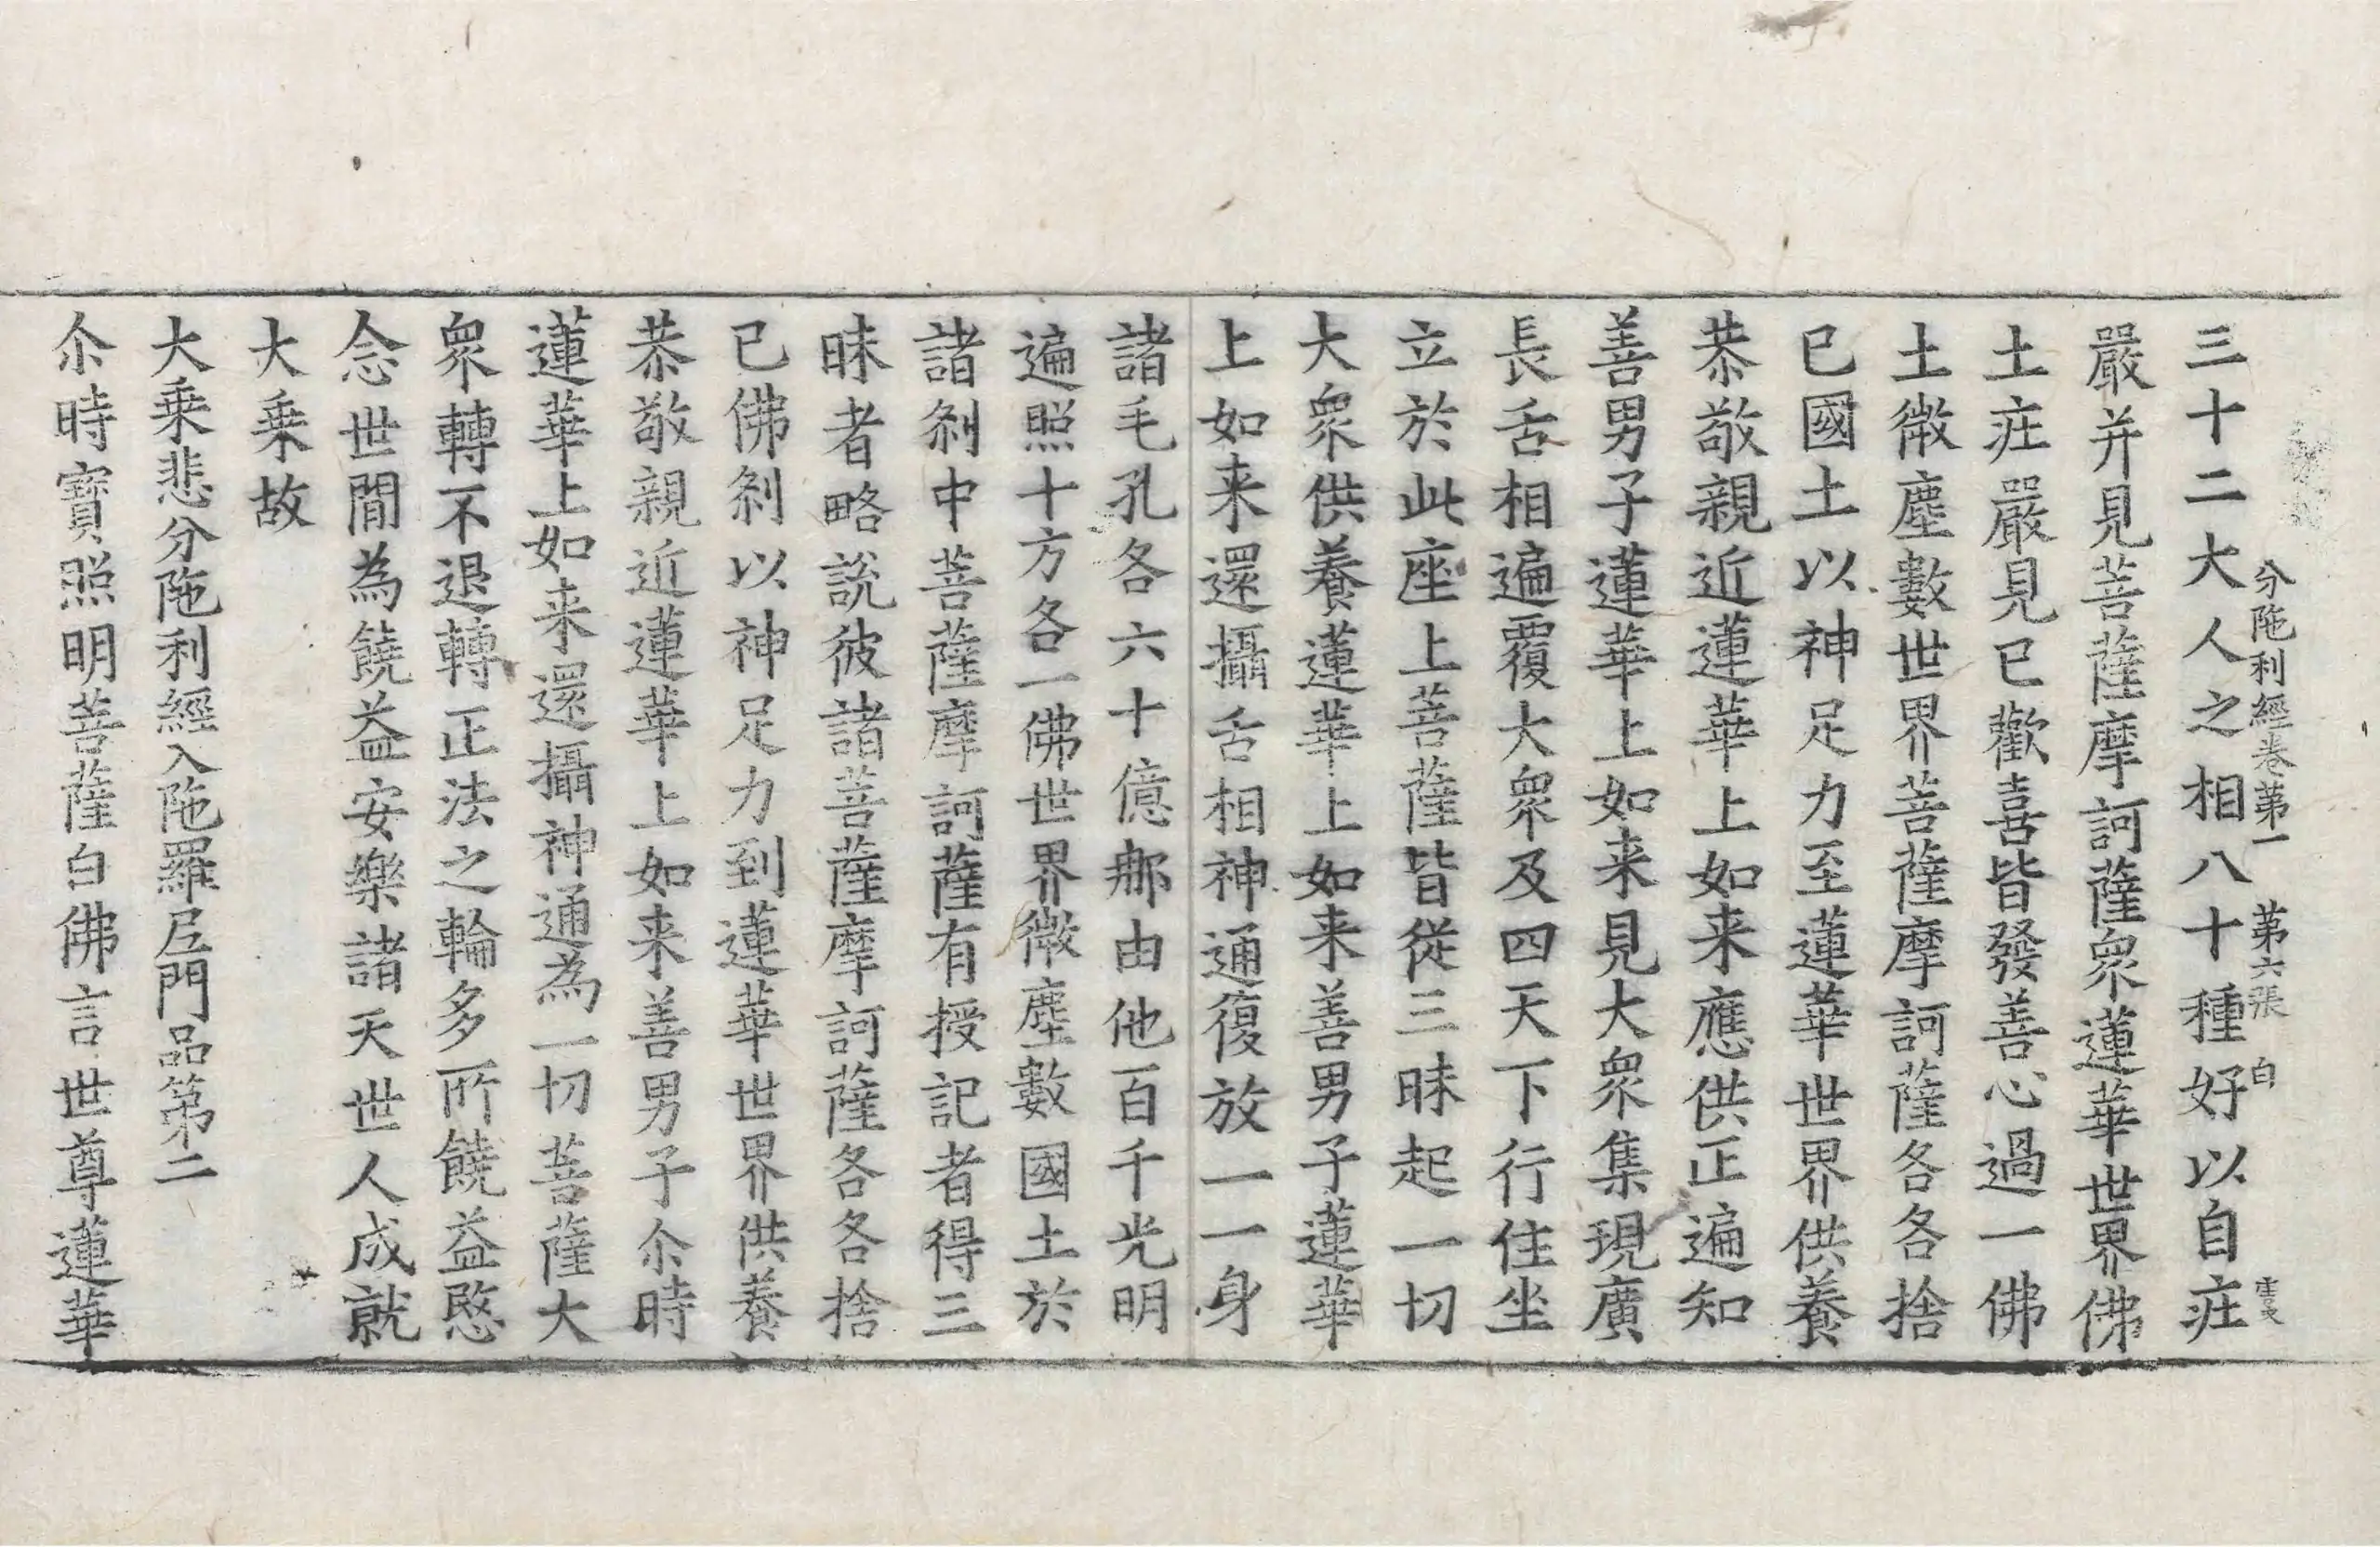 分陁利經卷第一 第六張 白
三十二大人之相八十種好以自㽵
嚴并見菩薩摩訶薩衆蓮華世界佛
土㽵嚴見已歡喜皆發善心過一佛
土微塵數世界菩薩摩訶薩各各捨
已國土以神足力至蓮華世界供養
恭敬親近蓮華上如来應供正遍知
善男子蓮華上如来見大衆集現廣
長舌相遍覆大衆及四天下行住坐
立於此座上菩薩皆從三昧起一切
大衆供養蓮華上如来善男子蓮華
上如来還攝舌相神通復放一一身
諸毛孔各六十億那由他百千光明
遍照十方各一佛世界微塵數國土於
諸刹中菩薩摩訶薩有授記者得三
昧者略說彼諸菩薩摩訶薩各各捨
已佛刹以神足力到蓮華世界供養
恭敬親近蓮華上如来善男子尒時
蓮華上如来還攝神通為一切菩薩大
衆轉不退轉正法之輪多所饒益愍
念世間為饒益安樂諸天世人成就
大乗故
大乗悲分陁利經入陁羅尼門品第二
尒時寶照明菩薩白佛言世尊蓮華